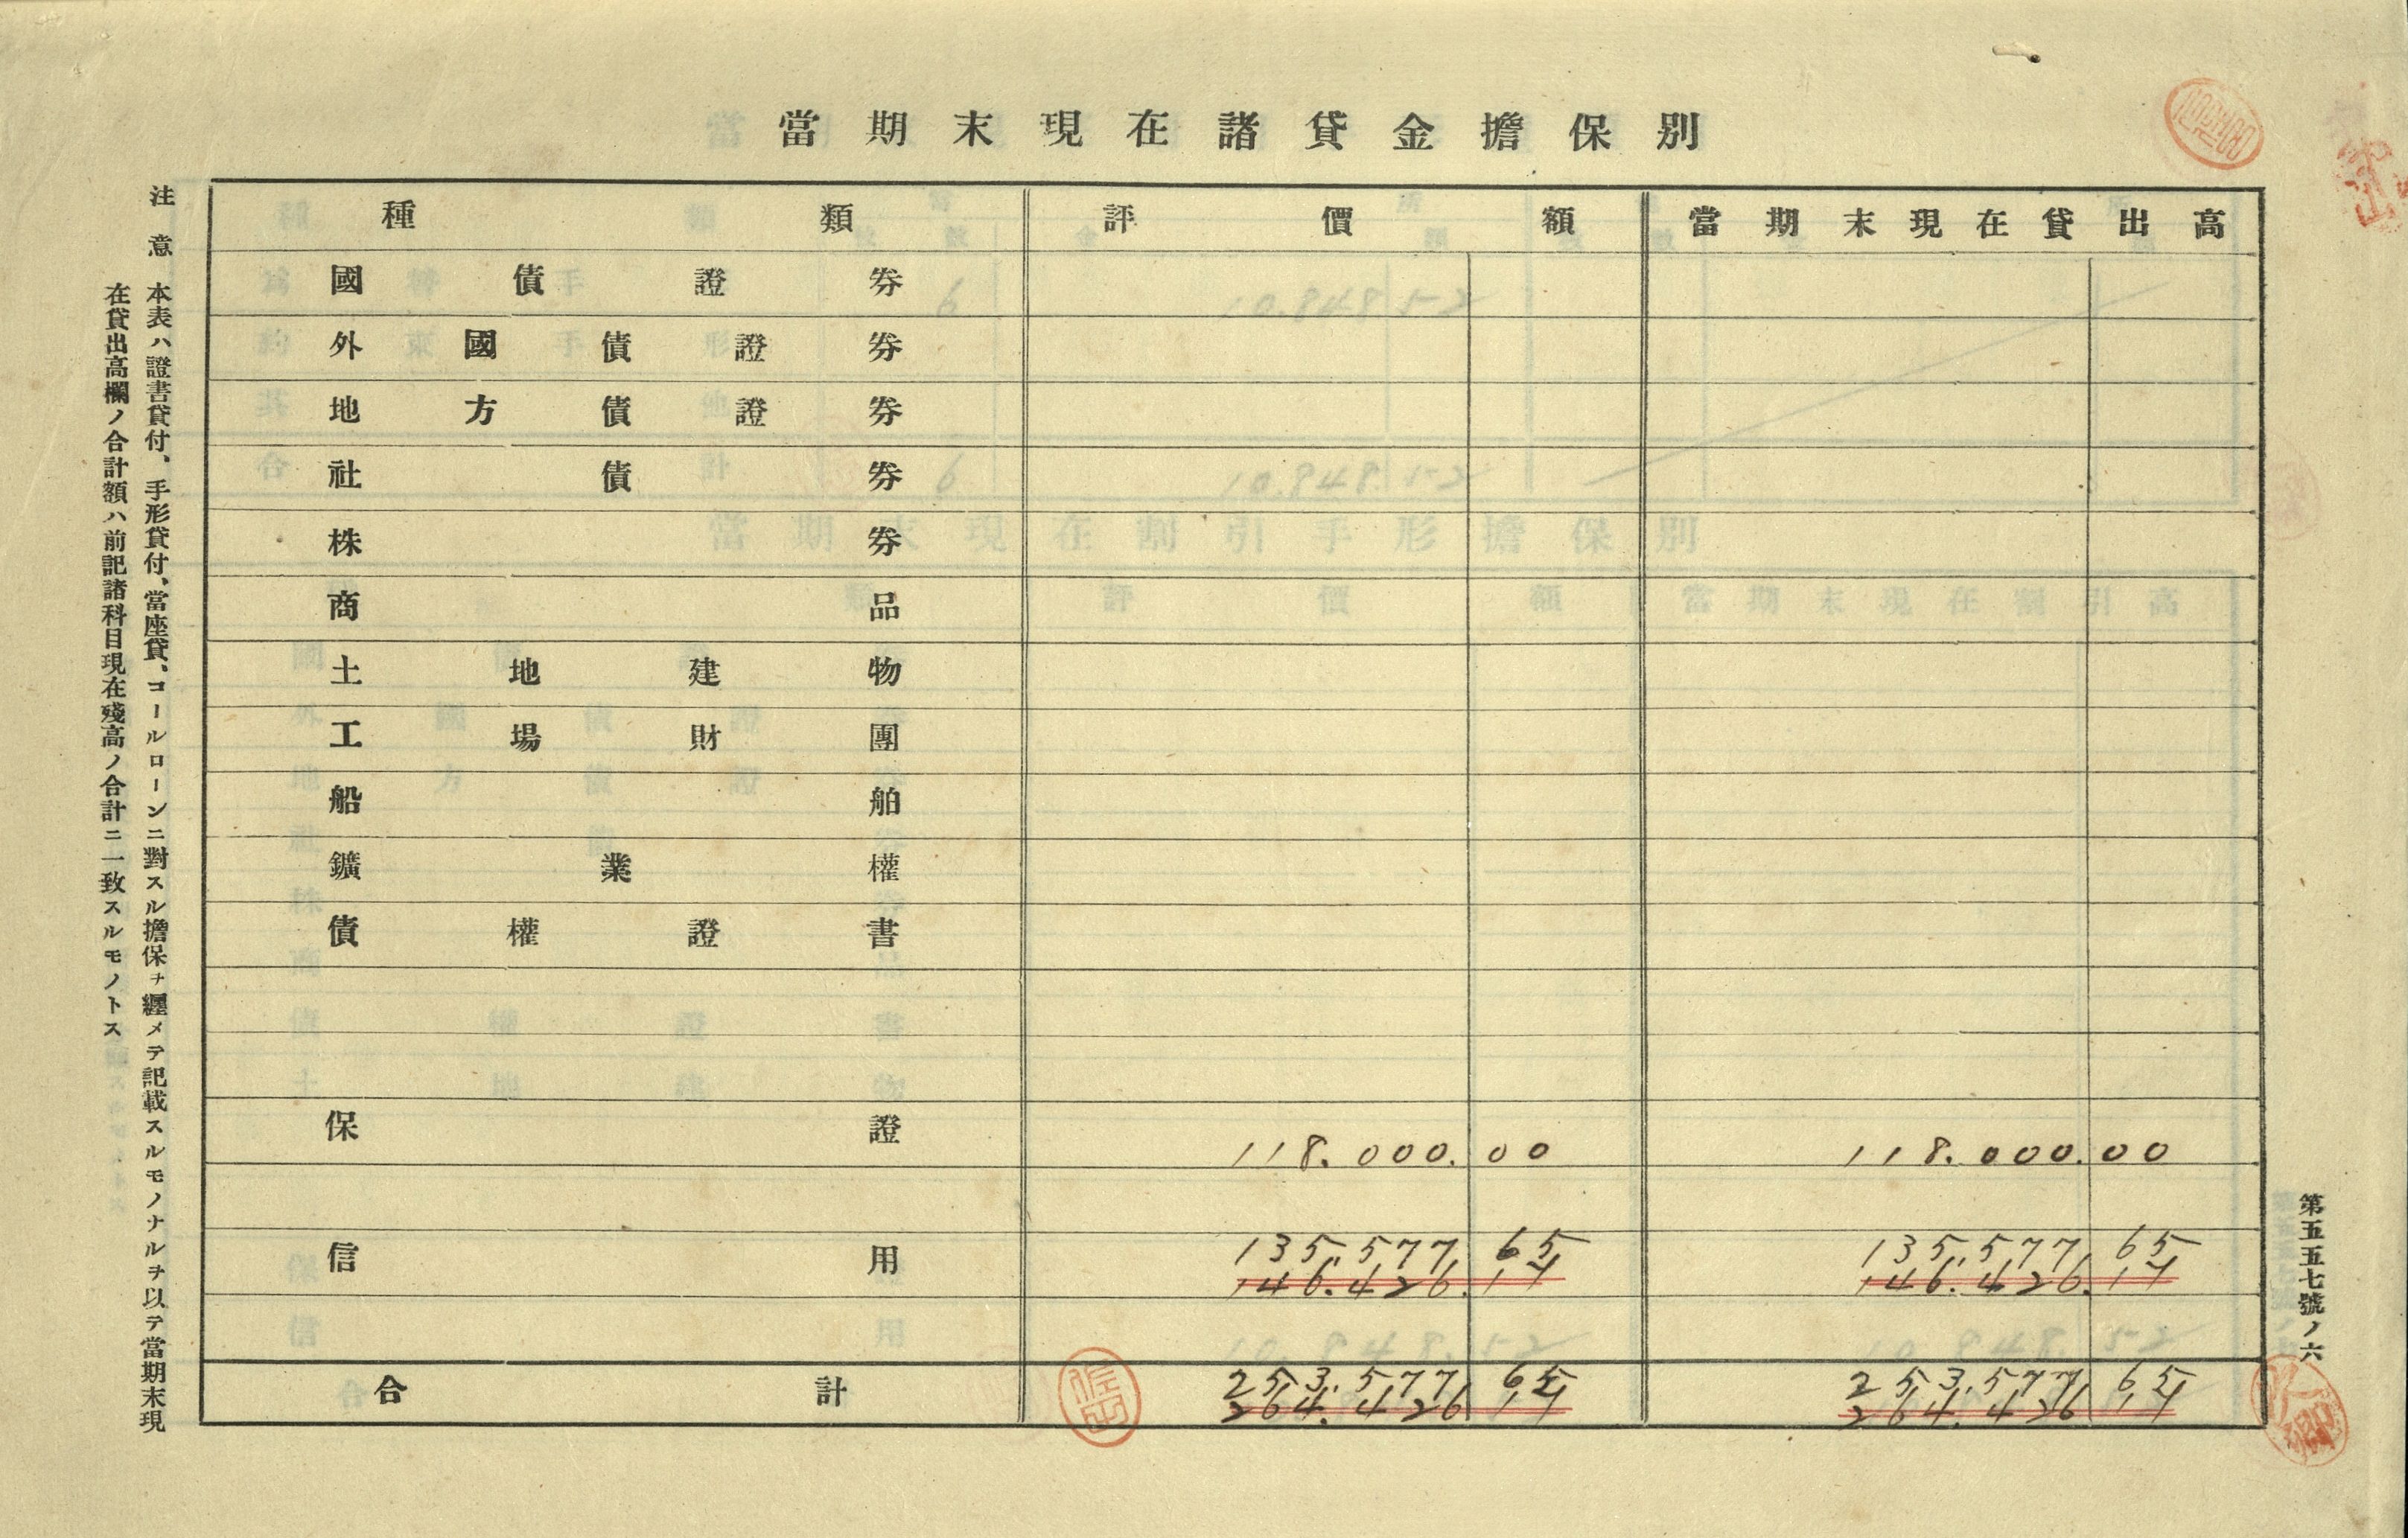 當期末現在諸貸金擔保別
種類 評價額 當期末現在貸出高
國債證券
外國債證券
地方債證券
社債券
株券
商品
土地建物
工場財團
船舶
鑛業權
債權證書
保證 118.000.00 118.000.00
信用 135.577.65 135.577.65
146.426.17 146.426.17
合計 253.577.65 253.577.65
264.426.17 264.426.17
第五五七號ノ六
注意
本表ハ證書貸付、手形貸付、當座貸、コールローンニ對スル擔保ヲ纒メテ記載スルモノナルヲ以テ當期末現
在貸出高欄ノ合計額ハ前記諸科目現在殘高ノ合計ニ一致スルモノトス